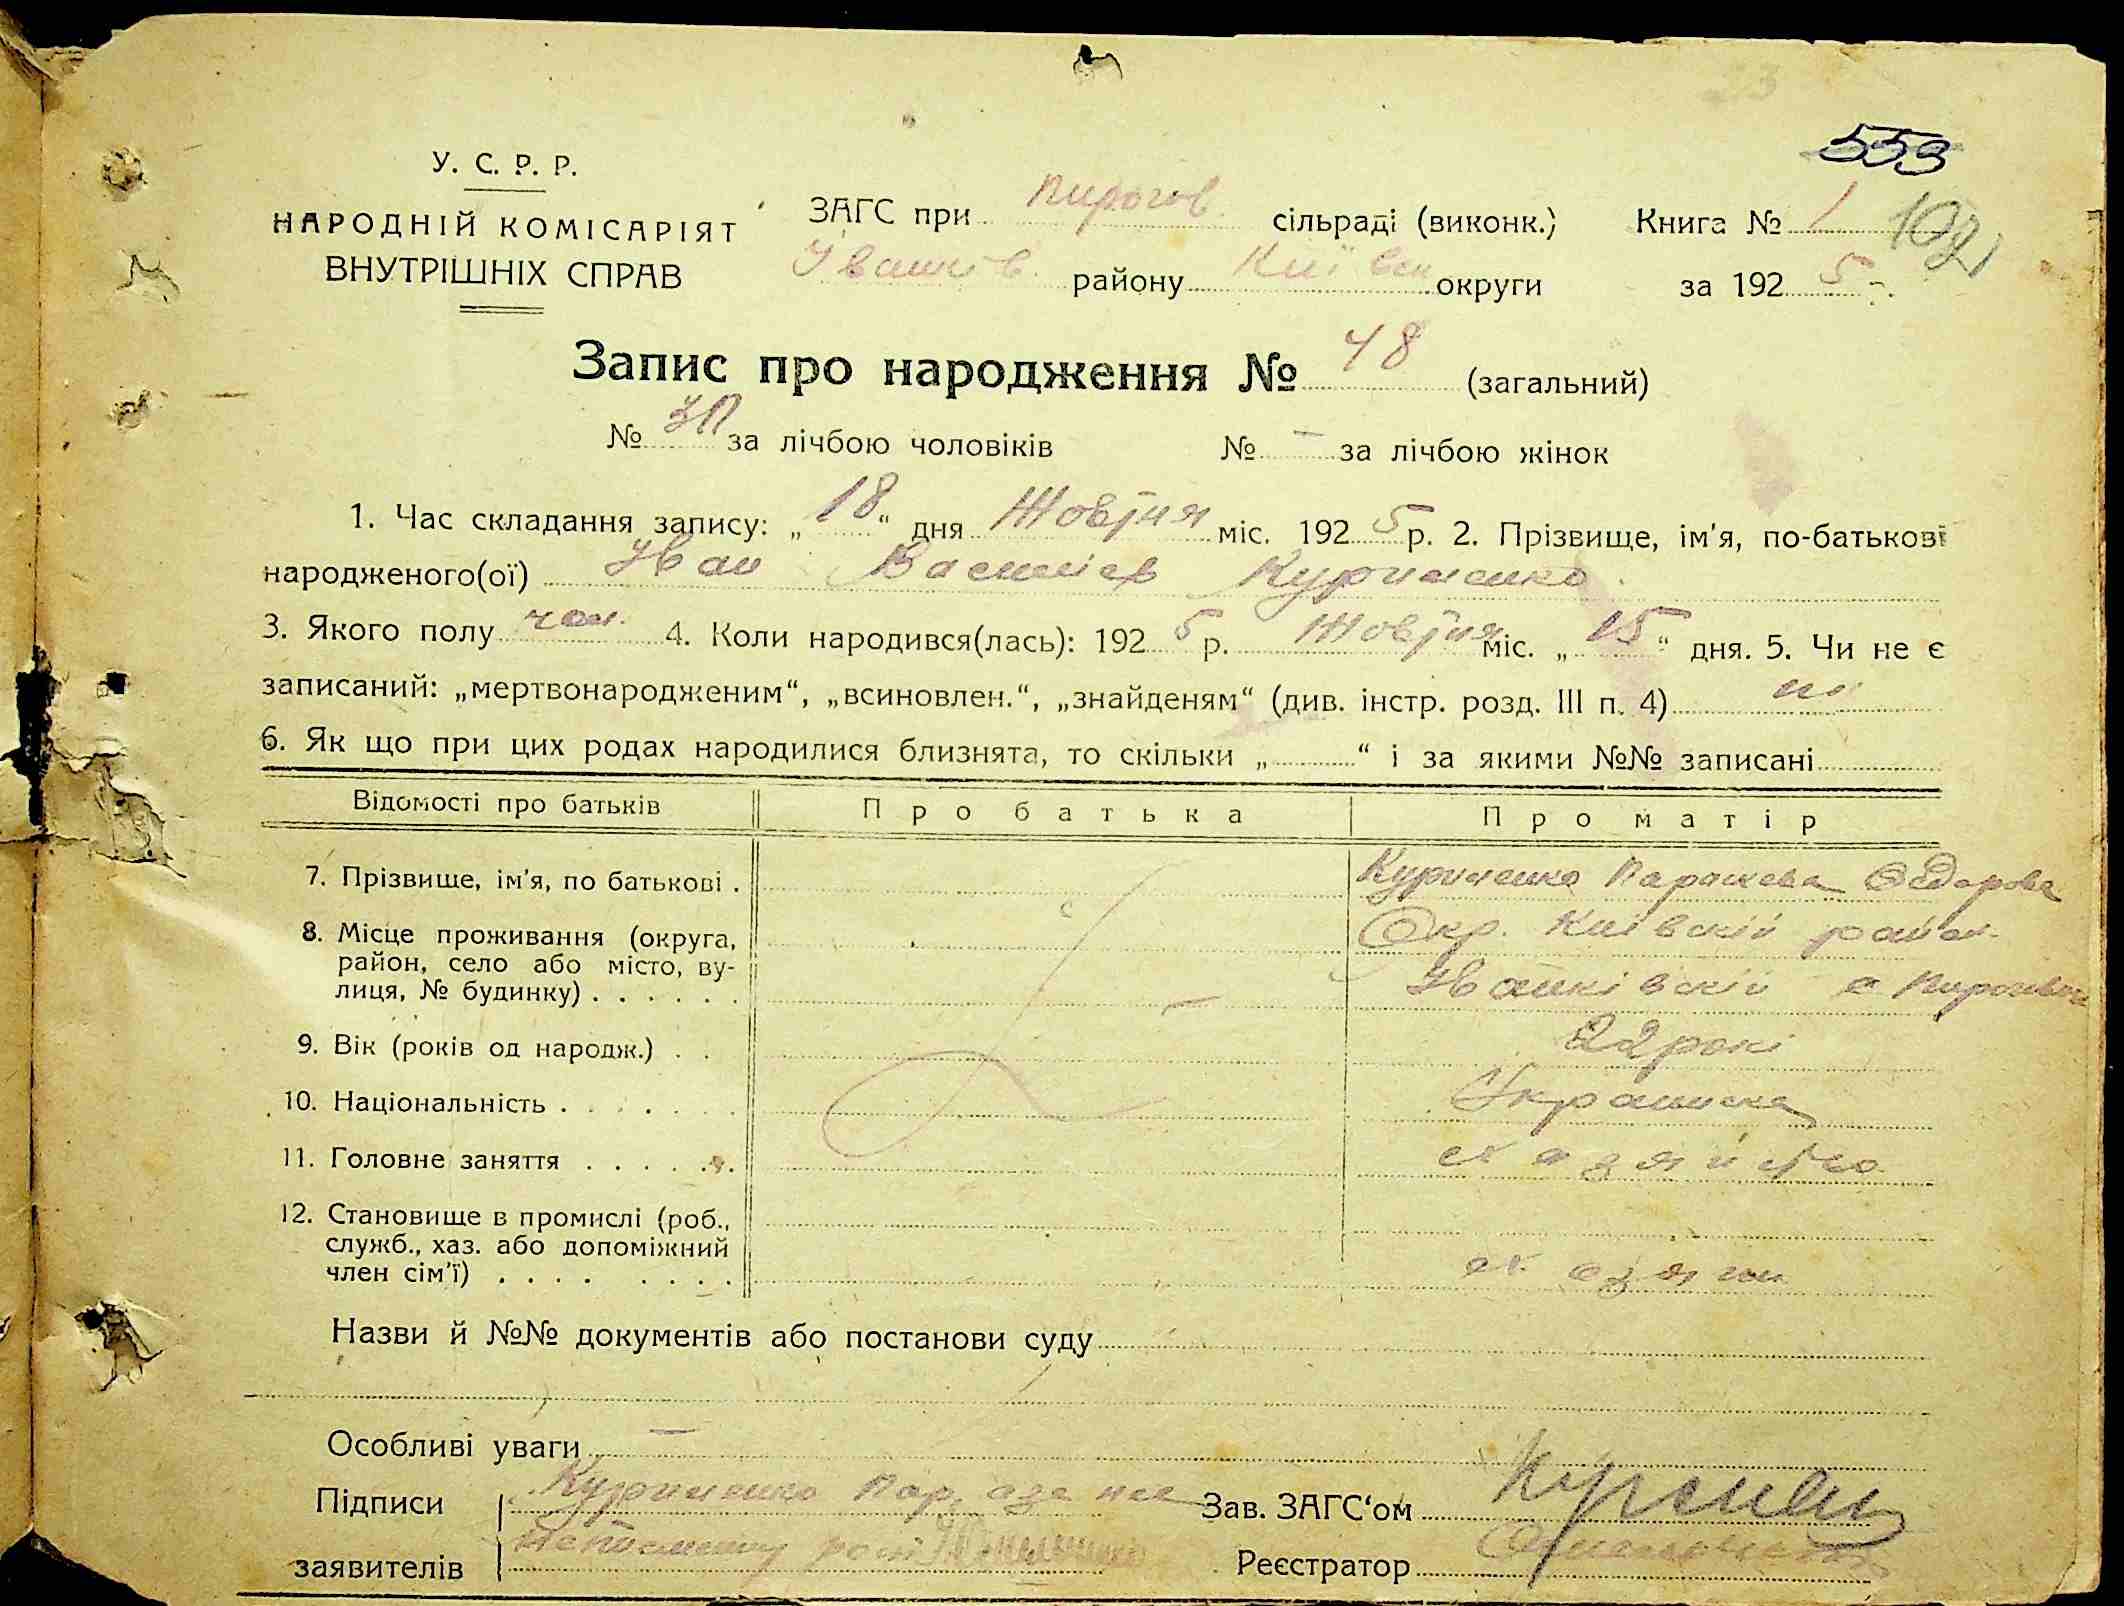 553
У. С. Р. Р.
НАРОДНІЙ КОМІСАРІЯТ
ВНУТРІШНІХ СПРАВ
ЗАГС при Пирогов сільраді (виконк.) Книга № 1 102
району Київськ округи за 1925
Запис про народження № 48 (загальний)
№ за лічбою чоловіків № – за лічбою жінок
1. Час складання запису: „18“ дня Жовтня міс. 1925 р. 2. Прізвище, ім'я, по-батькові
народженого(ої) Іван Василіев Куриненко
3. Якого полу чол. 4. Коли народився(лась): 1925 р. Жовтня міс. „15“ дня. 5. Чи не є
записаний: „мертвонародженим“, „всиновлен.“, „знайденям“ (див. інстр. розд. III п. 4) ні
6. Як що при цих родах народилися близнята, то скільки „ “ і за якими №№ записані
Відомості про батьків Про батька Про матір
7. Прізвище, ім'я, по батькові . Куриненко Параскева Федорова
8. Місце проживання (округа, Окр. Київскій район
район, село або місто, ву- Івашківскій с Пирогівка
лиця, № будинку) . . . . . .
9. Вік (років од народж.) . . 22 рокі
10. Національність . . . . . . . Украинка
11. Головне заняття . . . . . . хазяйство
12. Становище в промислі (роб.,
служб., хаз. або допоміжний
член сім'ї) . . . . . . . .
Назви й №№ документів або постанови суду
Особливі уваги –
Підписи Куриненко Пар. а за нее Зав. ЗАГС'ом
заявителів неписменну Реєстратор